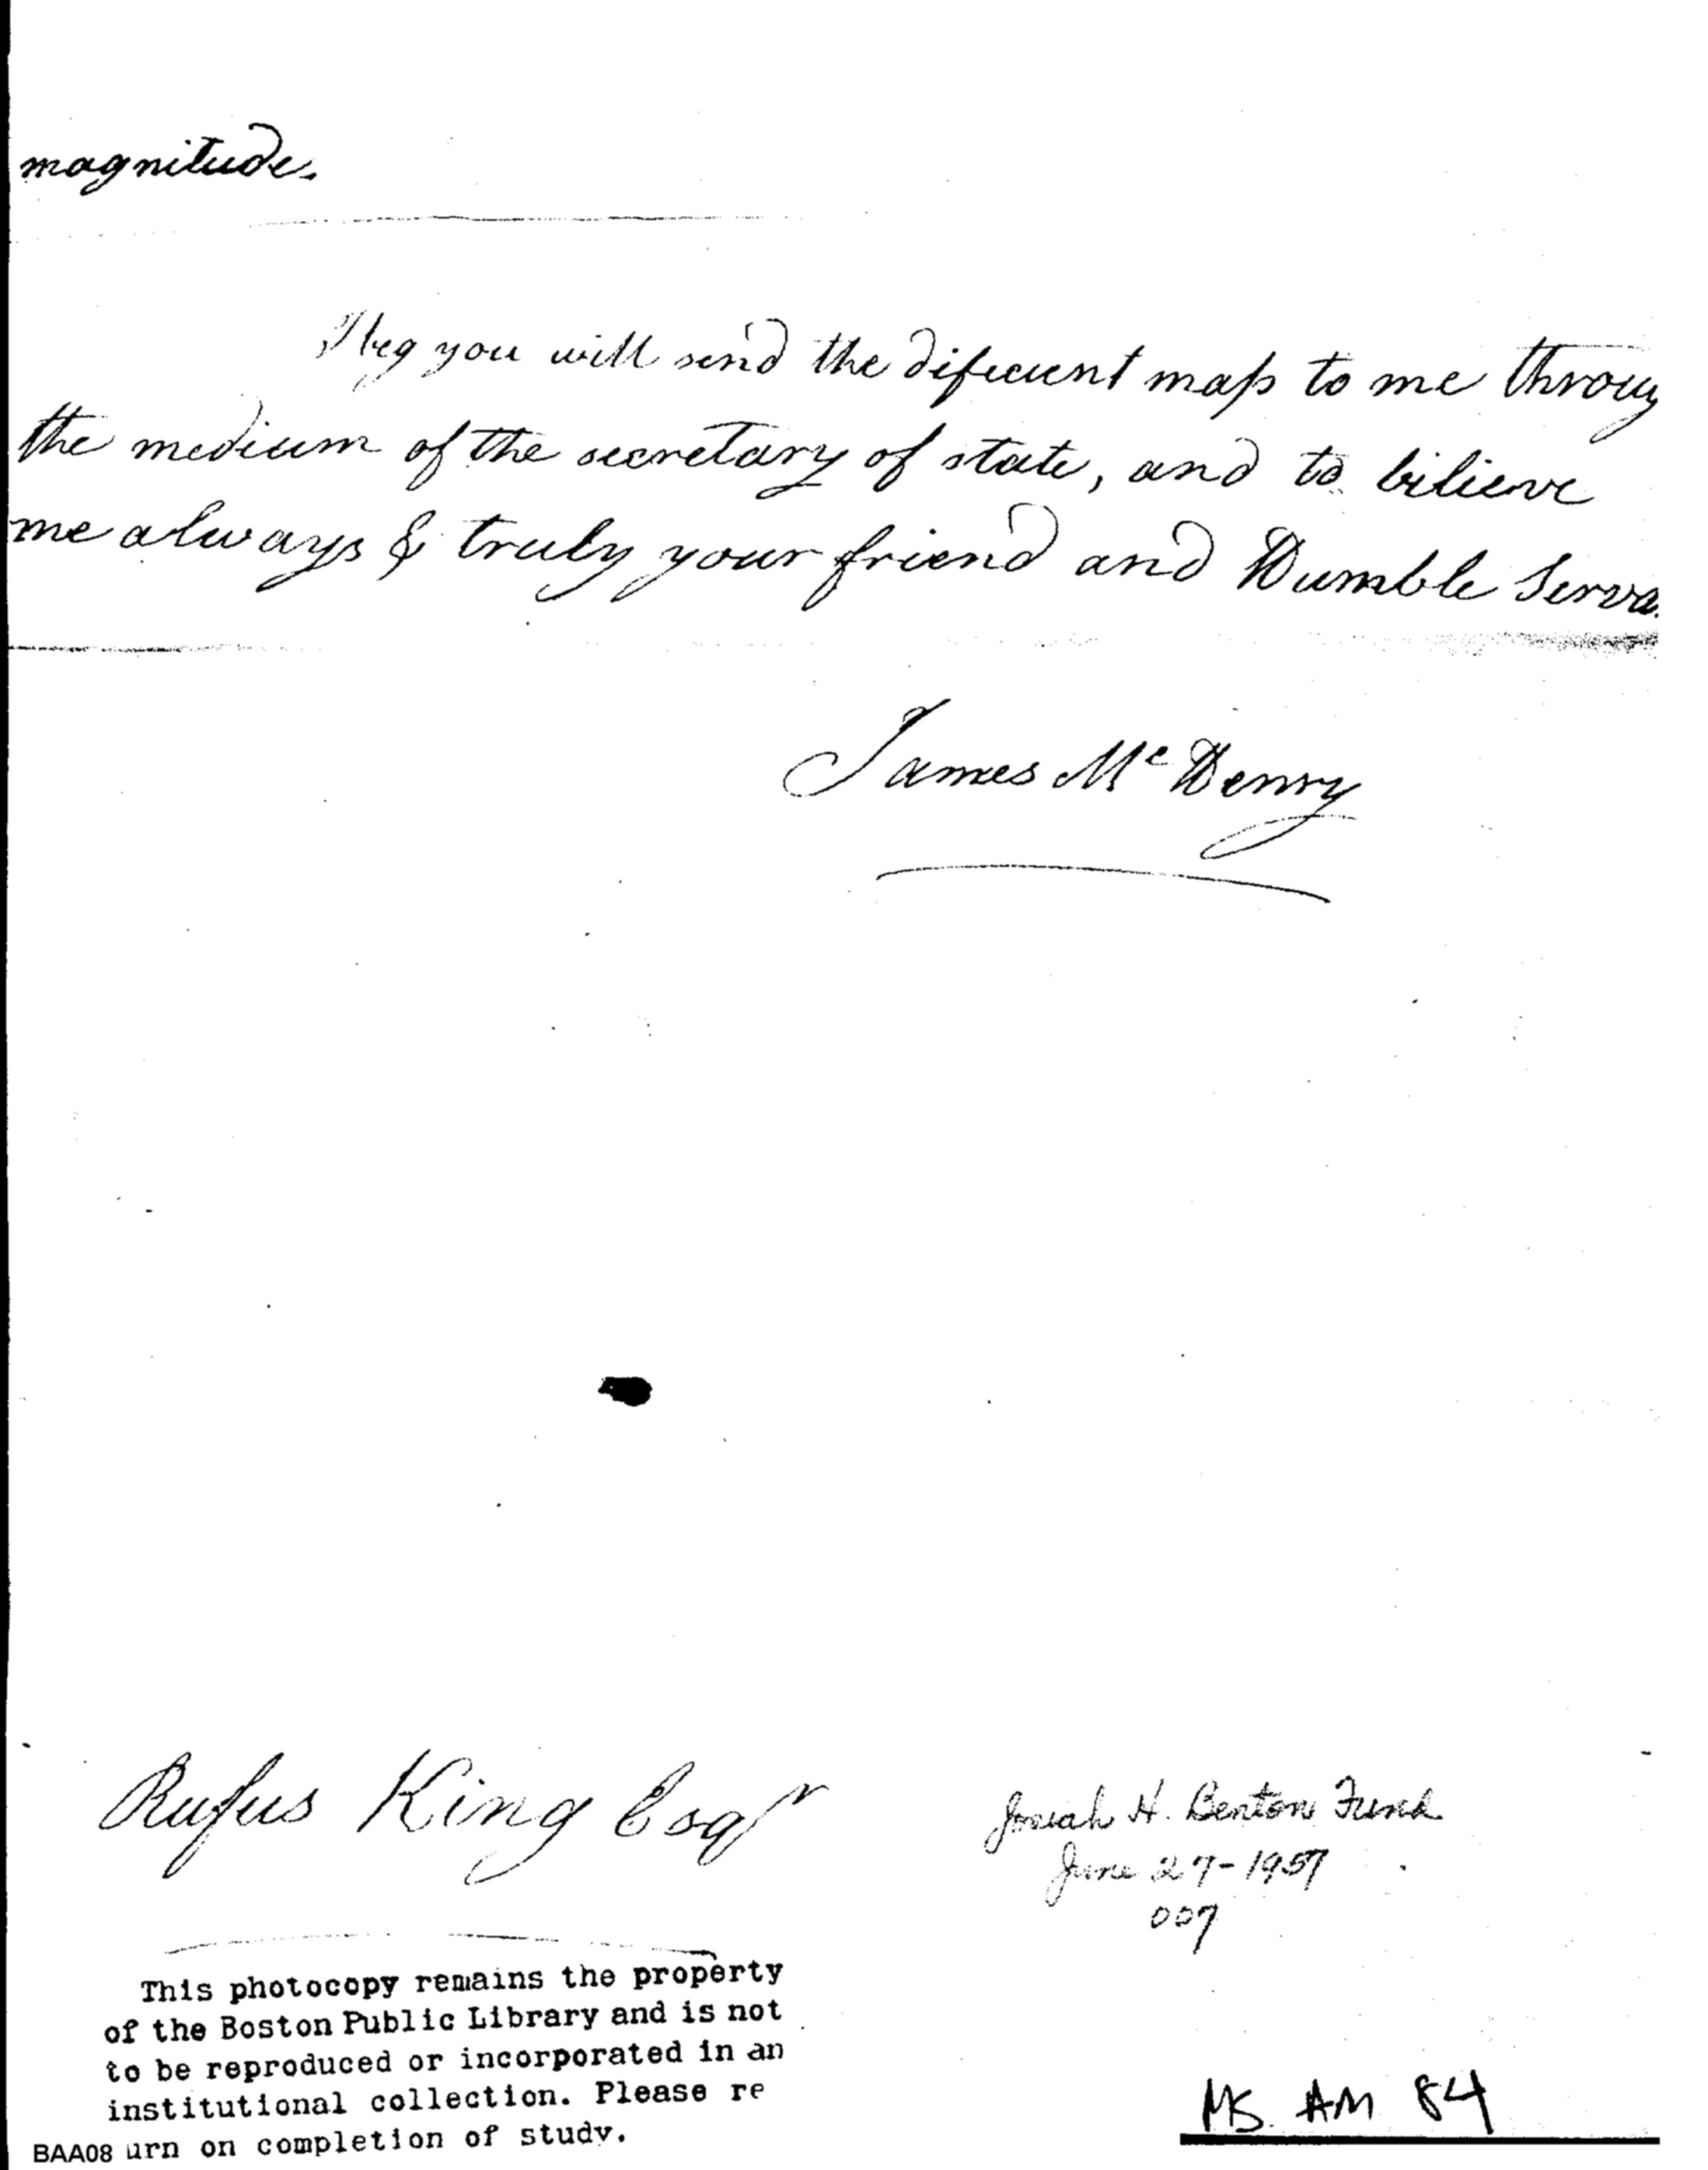 magnitude.
I beg you will send the different map to me throug
the medium of the secretary of state, and to bilieve
me always & truly your friend and Humble Serva
James Mc Henry
Rufus King Esqr
Josiah H. Benton Fund
June 27-1957
007
This photocopy remains the property
of the Boston Public Library and is not
to be reproduced or incorporated in an
institutional collection. Please re
BAA08 urn on completion of study.
MS. AM 84